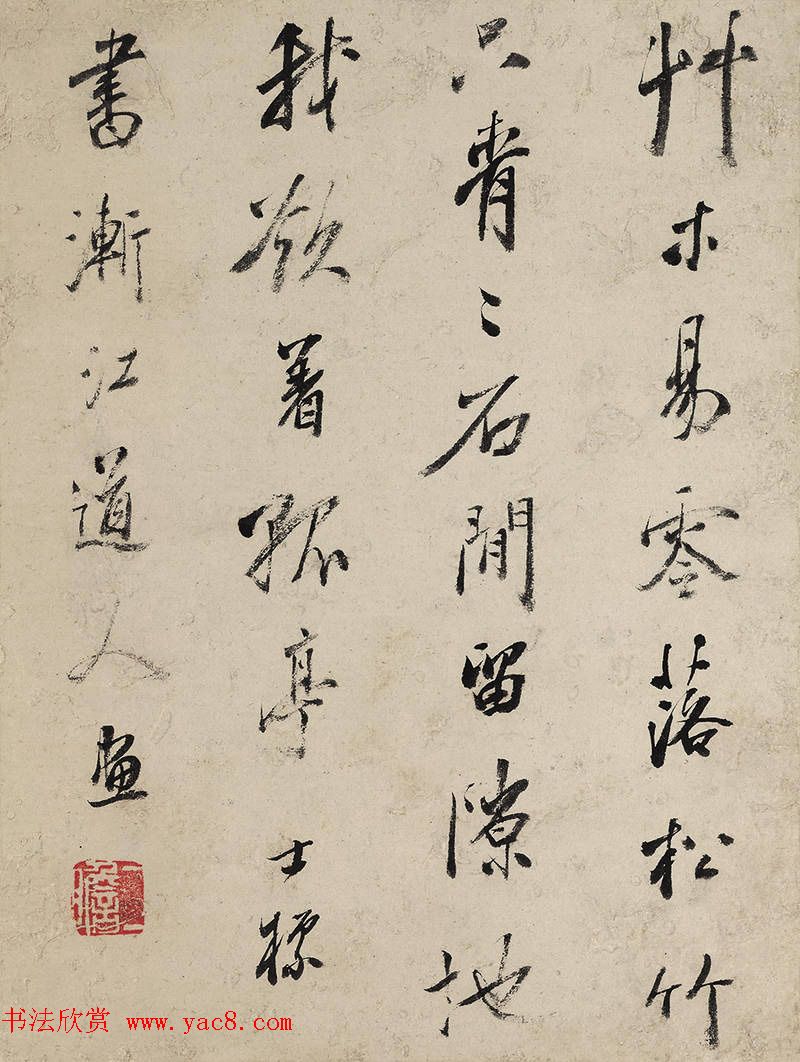 艸木易零落松竹
只青〻石間留隙地
我欲着孤亭士標
書漸江道人畫
书法欣赏 www.yac8.com